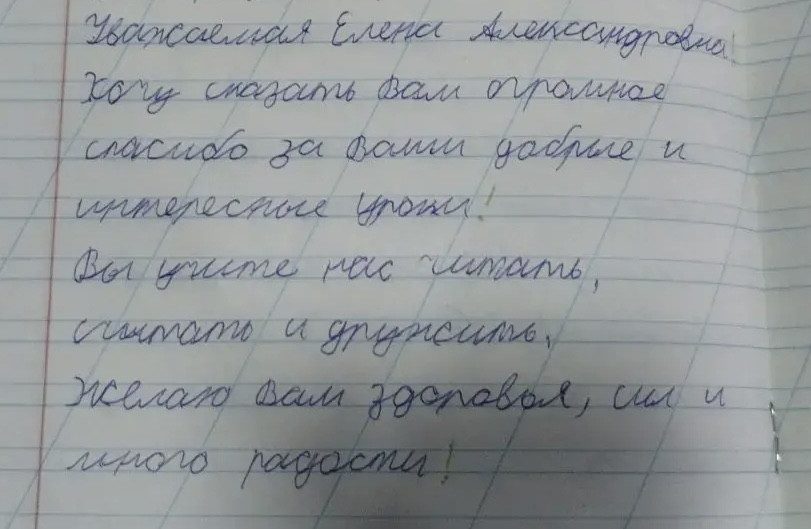 Уважаемая Елена Александровна!
Хочу сказать Вам огромное
спасибо за Ваши добрые и
интересные уроки!
Вы учите нас читать,
считать и дружить,
Желаю Вам здоровья, сил и
много радости!